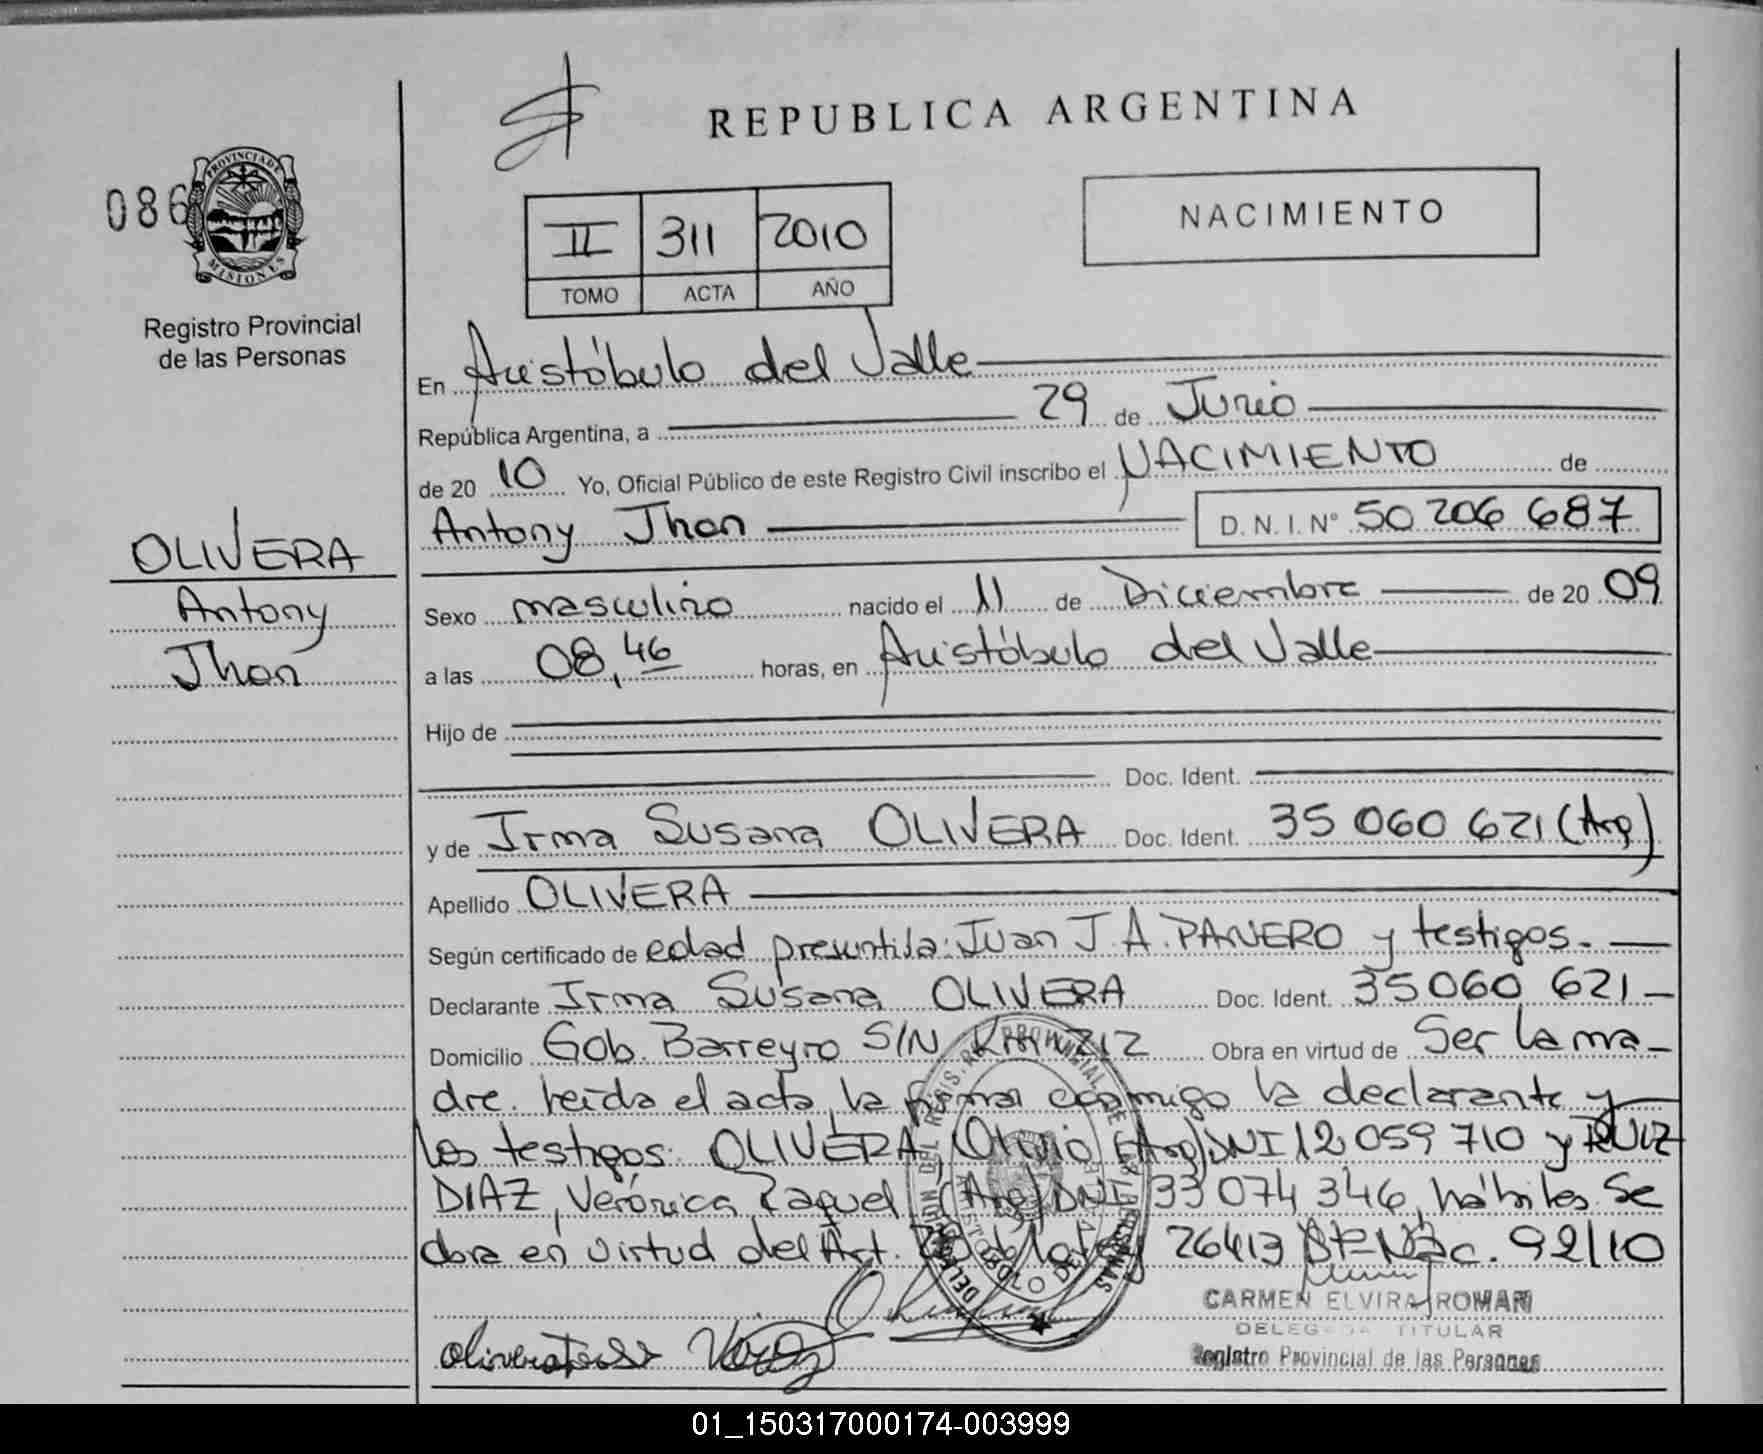 REPUBLICA ARGENTINA
086
PROVINCIA DE MISIONES
Registro Provincial
de las Personas
NACIMIENTO
II 311 2010
TOMO ACTA AÑO
En Aristóbulo del Valle
República Argentina, a 29 de Junio
de 20 10 Yo, Oficial Público de este Registro Civil inscribo el NACIMIENTO de
Antony Jhon D.N.I. Nº 50 206 687
OLIVERA
Antony
Jhon
Sexo masculino nacido el 11 de Diciembre de 20 09
a las 08,46 horas, en Aristóbulo del Valle
Hijo de
Doc. Ident.
y de Irma Susana OLIVERA Doc. Ident. 35 060 621 (Arg)
Apellido OLIVERA
Según certificado de edad presuntiva: Juan J. A. PANERO y testigos.
Declarante Irma Susana OLIVERA Doc. Ident. 35 060 621
Domicilio Gob. Barreyro S/N Obra en virtud de Ser la ma-
dre. Leída el acta, la firman conmigo la declarante y
los testigos: OLIVERA, (Arg) DNI 12 059 710 y RUIZ
DIAZ, Verónica Raquel (Arg) DNI 33 074 346, hábiles. Se
obra en virtud del Art. 26413 92/10
CARMEN ELVIRA ROMAN
DELEGADA TITULAR
Registro Provincial de las Personas
01_150317000174-003999